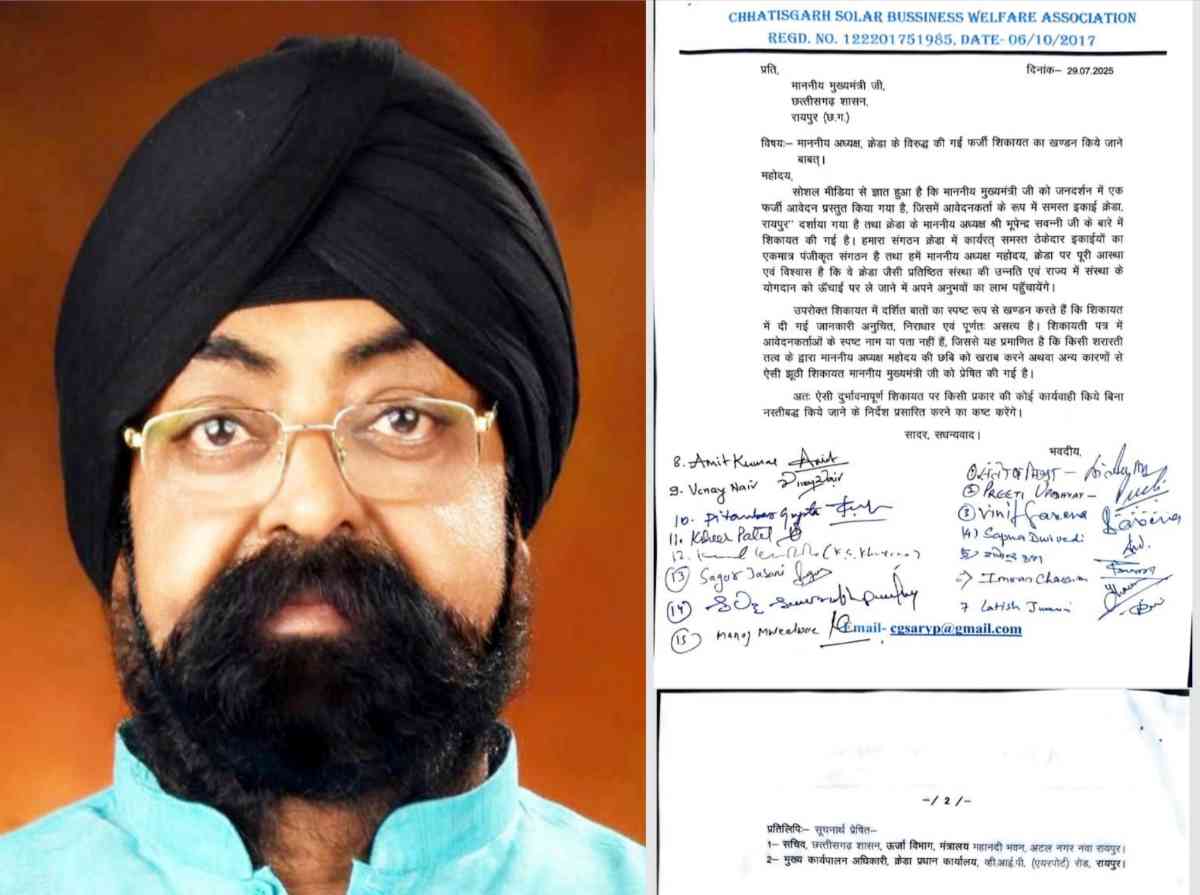 CHHATISGARH SOLAR BUSSINESS WELFARE ASSOCIATION
REGD. NO. 122201751985, DATE- 06/10/2017
प्रति,
दिनांक– 29.07.2025
माननीय मुख्यमंत्री जी,
छत्तीसगढ़ शासन,
रायपुर (छ.ग.)
विषयः– माननीय अध्यक्ष, क्रेडा के विरुद्ध की गई फर्जी शिकायत का खण्डन किये जाने
बाबत्।
महोदय,
सोशल मीडिया से ज्ञात हुआ है कि माननीय मुख्यमंत्री जी को जनदर्शन में एक
फर्जी आवेदन प्रस्तुत किया गया है, जिसमें आवेदनकर्ता के रूप में समस्त इकाई क्रेडा,
रायपुर" दर्शाया गया है तथा क्रेडा के माननीय अध्यक्ष श्री भूपेन्द्र सवन्नी जी के बारे में
शिकायत की गई है। हमारा संगठन क्रेडा में कार्यरत् समस्त ठेकेदार इकाईयों का
एकमात्र पंजीकृत संगठन है तथा हमें माननीय अध्यक्ष महोदय, क्रेडा पर पूरी आस्था
एवं विश्वास है कि वे क्रेडा जैसी प्रतिष्ठित संस्था की उन्नति एवं राज्य में संस्था के
योगदान को ऊँचाई पर ले जाने में अपने अनुभवों का लाभ पहुँचायेंगे।
उपरोक्त शिकायत में दर्शित बातों का स्पष्ट रूप से खण्डन करते हैं कि शिकायत
में दी गई जानकारी अनुचित, निराधार एवं पूर्णतः असत्य है। शिकायती पत्र में
आवेदनकर्ताओं के स्पष्ट नाम या पता नहीं हैं, जिससे यह प्रमाणित है कि किसी शरारती
तत्व के द्वारा माननीय अध्यक्ष महोदय की छबि को खराब करने अथवा अन्य कारणों से
ऐसी झूठी शिकायत माननीय मुख्यमंत्री जी को प्रेषित की गई है।
अतः ऐसी दुर्भावनापूर्ण शिकायत पर किसी प्रकार की कोई कार्यवाही किये बिना
नस्तीबद्ध किये जाने के निर्देश प्रसारित करने का कष्ट करेंगे।
सादर, सधन्यवाद।
भवदीय,
8. Amit Kumar
9. Venay Nair
10. Pitamber Gupta
11. Kheer Patel
12.
13 Sagar Jasani
14
15 Manoj
② PREETI
③ Vinit
(4) Sapna Dwivedi
Imran
7 Latish
Email- cgsaryp@gmail.com
-/ 2 /-
प्रतिलिपिः– सूचनार्थ प्रेषित–
1– सचिव, छत्तीसगढ़ शासन, ऊर्जा विभाग, मंत्रालय महानदी भवन, अटल नगर नवा रायपुर।
2– मुख्य कार्यपालन अधिकारी, क्रेडा प्रधान कार्यालय, व्ही.आई.पी. (एयरपोर्ट) रोड, रायपुर।